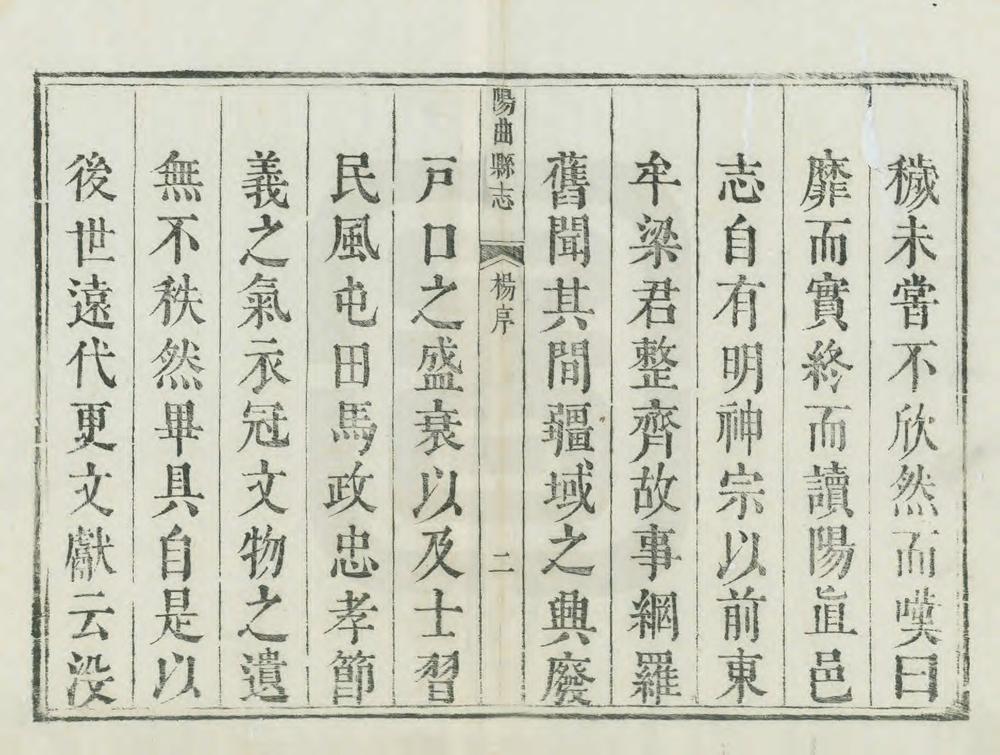 穢未嘗不欣然而嘆曰
靡而實終而讀陽直邑
志自有明神宗以前東
牟梁君整齊故事網羅
舊聞其間疆域之興廢
陽曲縣志 楊序 二
戸口之盛衰以及士習
民風屯田馬政忠孝節
義之氣衣冠文物之遺
無不秩然畢具自是以
後世遠代更文獻云没